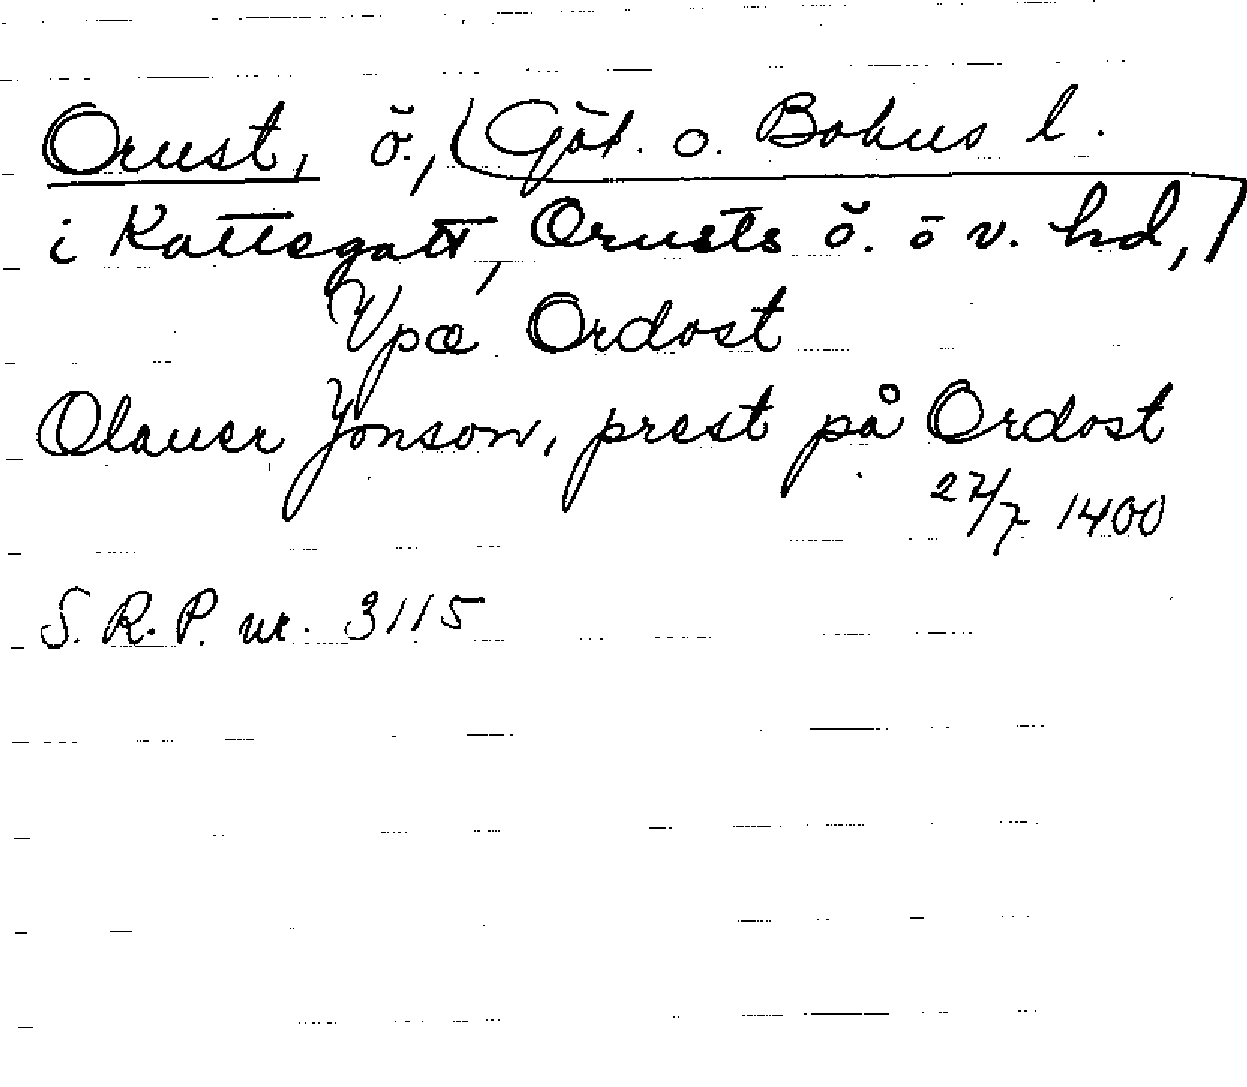 Orust, ö., (Göt. o. Bohus l.
i Kattegatt, Orusts ö. o v. hd,)
Vpa Ordost
Olauer Jonson, prest på Ordost
22/7 1400
S.R.P. nr. 3115